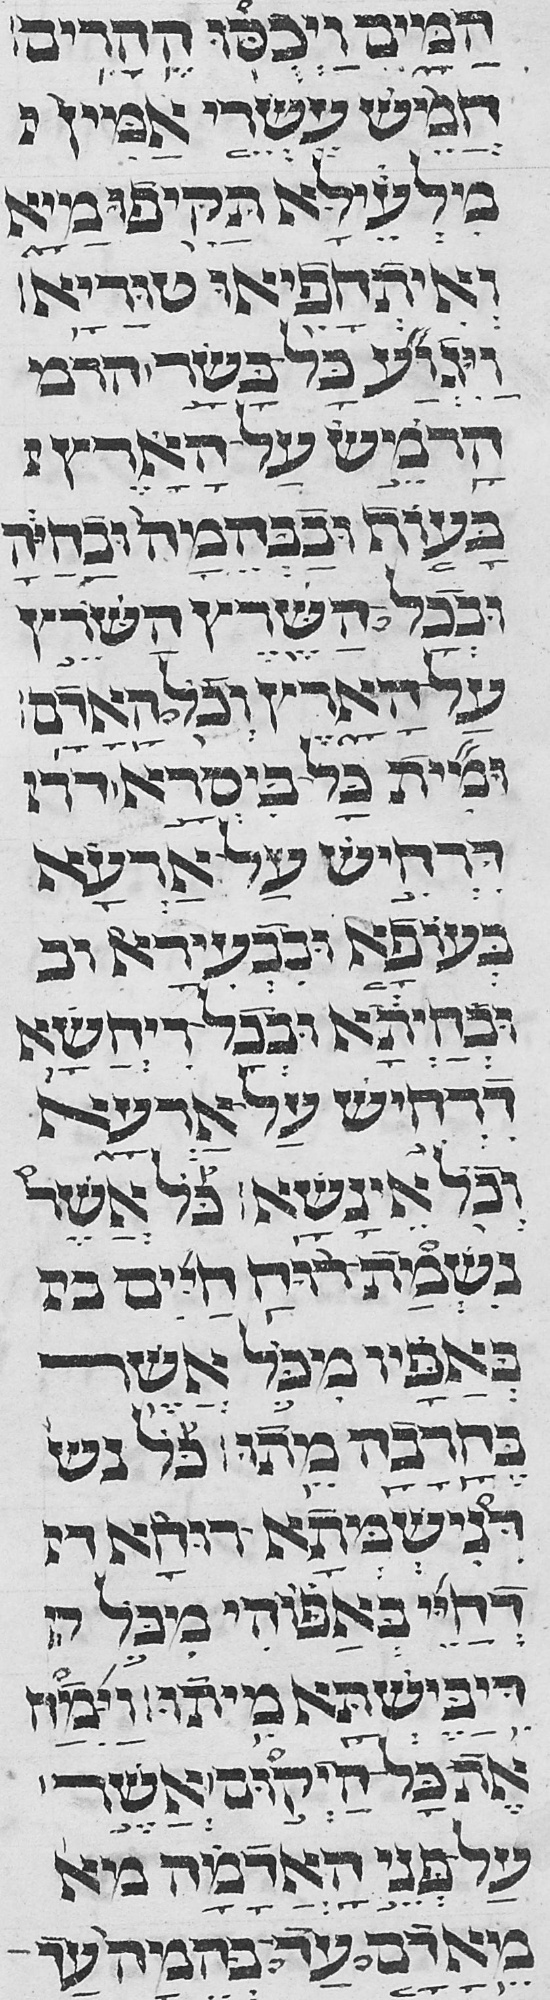 הַמַּיִם וַיְכֻסּוּ הֶהָרִים׃
חֲמֵשׁ עֶשְׂרֵי אַמִּין ו
מִלְעֵילָא תַּקִיפוּ מַיָא
וְאִיתְחֲפִיאוּ טוּרַיָא׃
וַיִּגְוַע כָּל בָּשָׂר הרמ
הָרֹמֵשׂ עַל הָאָרֶץ ו
בָּעוֹף וּבַבְּהֵמָה וּבַחַיָּה
וּבְכָל הַשֶּׁרֶץ הַשֹּׁרֵץ
עַל הָאָרֶץ וְכֹל הָאָדָם׃
וּמִית כָּל בִּיסְרָא דדו
דְּרָחֵישׁ עַל אַרְעָא
בְּעוֹפָא וּבִבְעִירָא וב
וּבְחַיְתָא וּבְכָל רִיחְשָׁא
דְּרָחֵישׁ עַל אַרְעָא
וְכֹל אֵינָשָׁא׃ כֹּל אֲשֶׁר
נִשְׁמַת רוּחַ חַיִּים בו
בְּאַפָּיו מִכֹּל אֲשֶׁר
בֶּחָרָבָה מֵתוּ׃ כֹּל נש
דְּנִישְׁמְתָא רוּחָא דו
דְּחַיֵּי בְּאַפּוֹהִי מִכֹּל ד
דִיבְּיַשְׁתָּא מִיתוּ׃ וַיִּמַח
אֶת כָּל הַיְקוּם אֲשֶׁר
עַל פְּנֵי הָאֲדָמָה מא
מֵאָדָם עַד בְּהֵמָה עַד